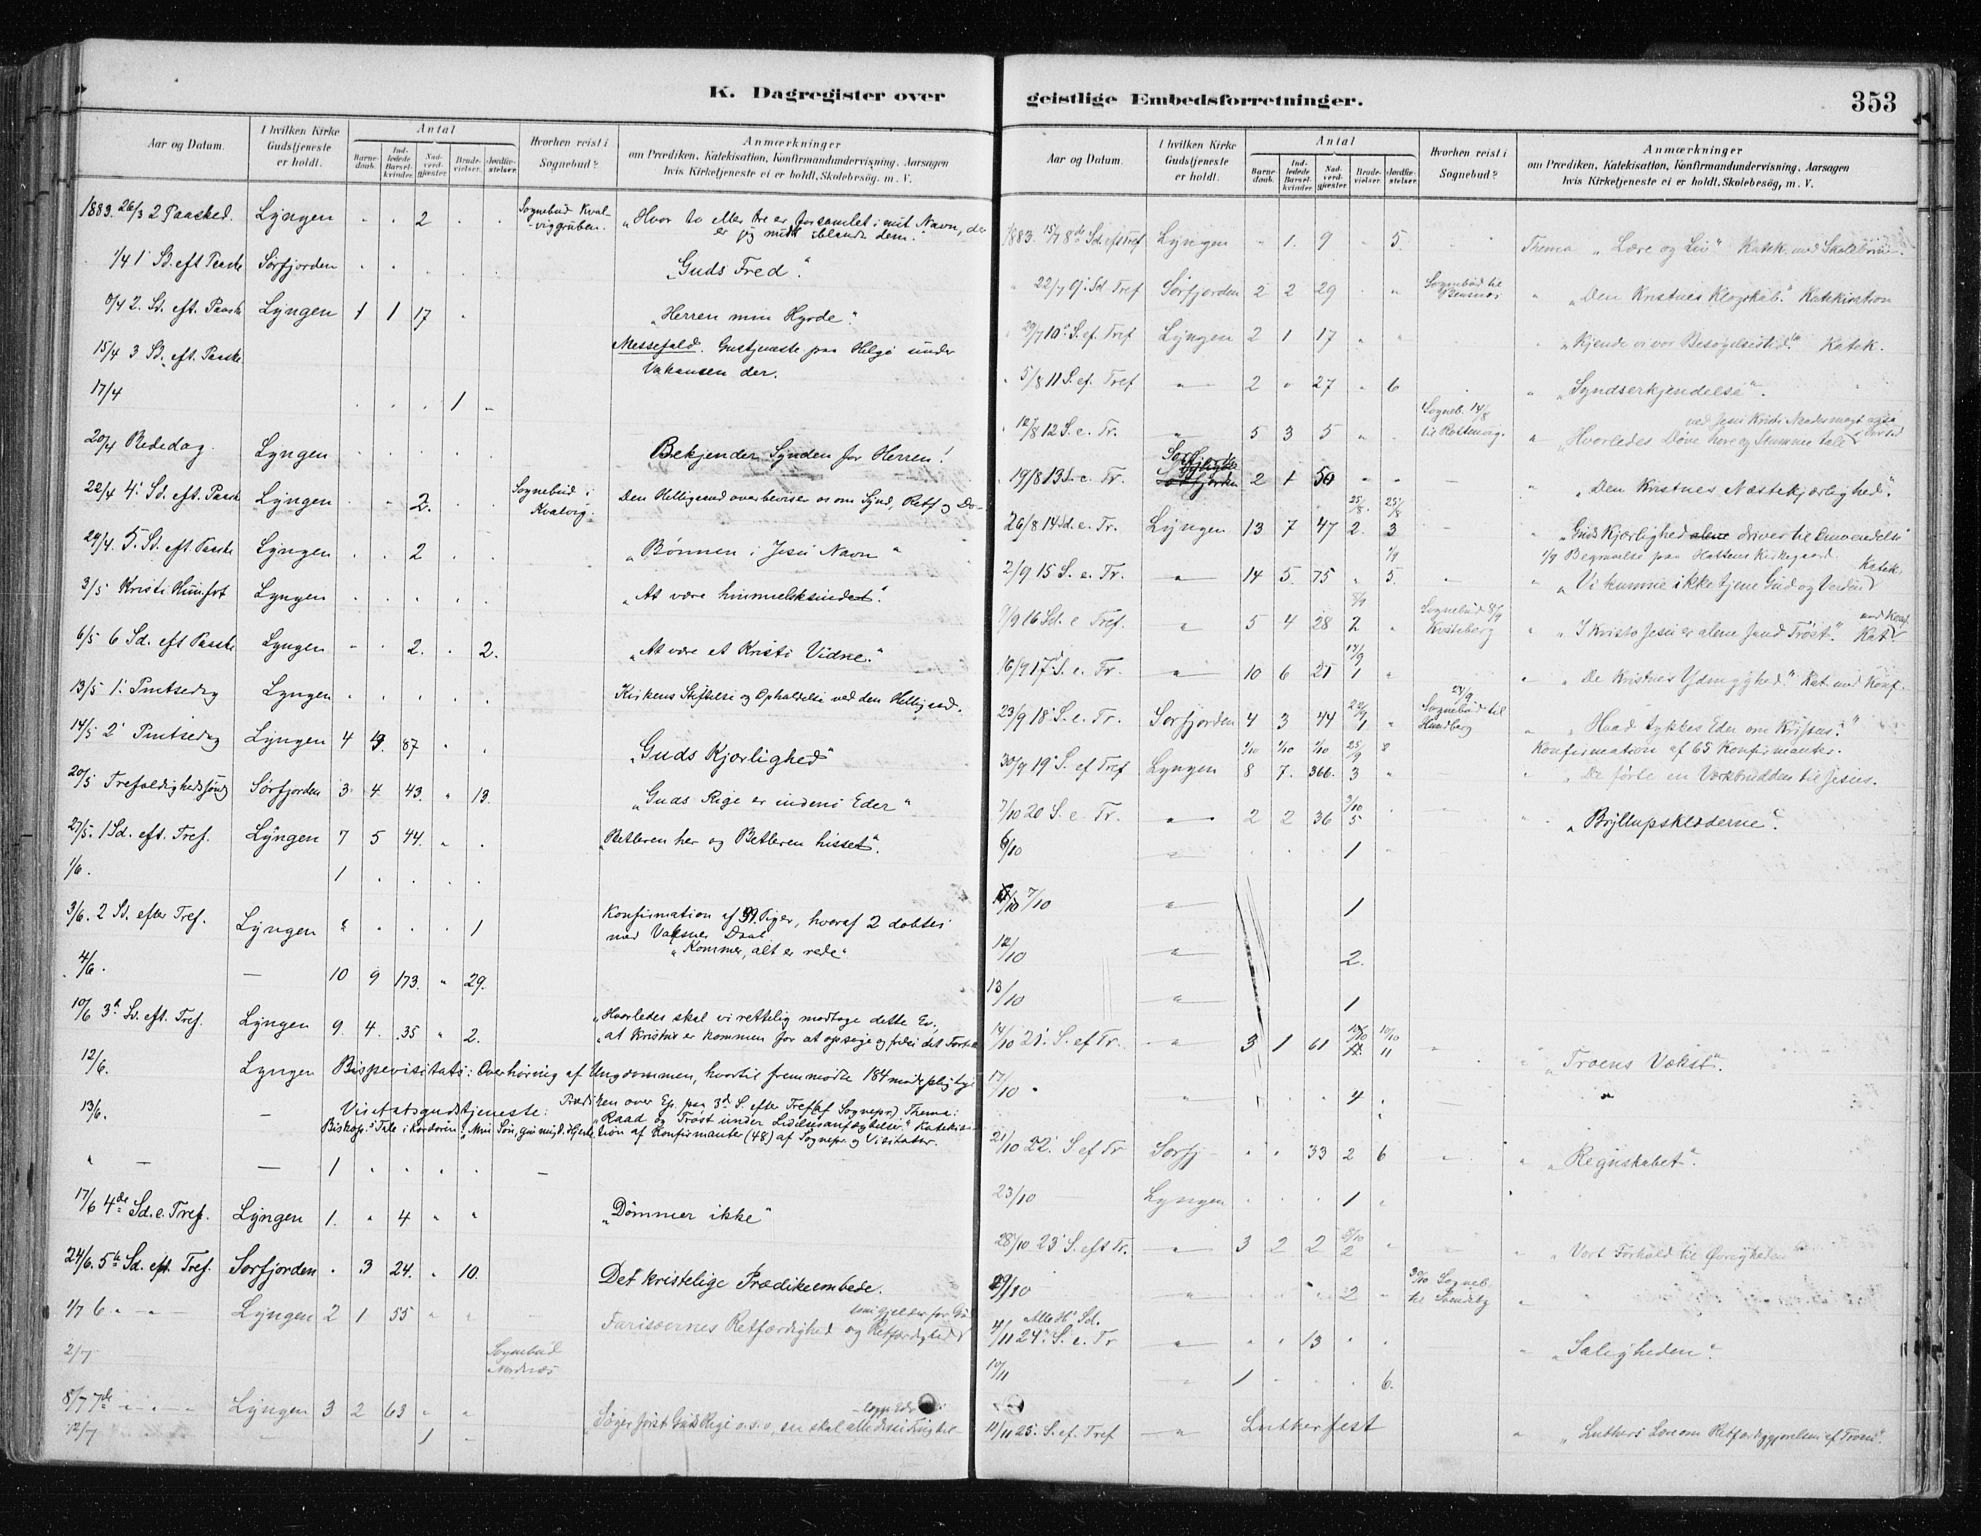 K. Dagregister over
Aar og Datum. I hvilken Kirke Gudstjeneste er holdt. Antal Barnedaab. Indledede Barselkvinder. Nadverdgjæster. Brudevielser. Jordfæstelser. Hvorhen reist i Sognebud? Anmærkninger om Prædiken, Katekisation, Konfirmandundervisning, Aarsagen hvis Kirketjeneste ei er holdt, Skolebesøg, m. V.
1883. 26/3 2 Paasked. Lyngen " " 2 " " Sognebud Kvalviggruben. „Hvor to eller tre er forsamlet i mit Navn, der er jeg midt iblandt dem."
1/4 1 Sd. eft Paaske Sørfjorden „Guds Fred".
8/4 2. Sd. eft. Paaske Lyngen 1 1 17 „Herren min Hyrde".
15/4 3 Sd. eft. Paaske Messefald. Gustjeneste paa Helgø under Vakansen der.
17/4 1
20/4 Bededag. Lyngen Bekjender Synden for Herren!
22/4 4. Sd. eft. Paaske Lyngen 2. Sognebud i Kvalvig. Den Helligaand overbeviser os om Synd, Retf og Do-
29/4. 5. Sd. eft Paaske Lyngen 2 „Bønnen i Jesu Navn"
3/5 Kristi Himfrt Lyngen „At være himmelsksindet".
6/5 6 Sd. eft Paaske Lyngen 2. 2. „At være et Kristi Vidne."
13/5 1. Pintsedag Lyngen Kirkens Stiftelse og Opholdelse ved den Helligaand.
14/5 2 Pintsedag Lyngen 4 87 „Guds Kjærlighed"
20/5 Trefoldighedssøndag Sørfjorden 3 4 43. " 13. „Guds Rige er indeni Eder"
27/5. 1 Sd. eft. Tref. Lyngen 7 5 44. „Betleren her og Betleren hisset".
1/6. 1
3/6. 2 Sd. efter Tref. Lyngen 1 Konfirmation af Piger, hvoraf 2 døbtes med Voksnes Daab „Kommer, alt er rede"
4/6. — 10 9 173. " 29.
10/6 3. Sd. eft. Tref. Lyngen 9. 4. 35 " 2. „Hvorledes skal vi rettelig modtage dette Ev., at Kristus er kommen for at opsøge og frelse det Fortabte
12/6. Lyngen Bispevisitats: Overhøring af Ungdommen, hvortil fremmødte 184 mødepligtige
13/6. — Visitatsgudstjeneste: Prædiken over Ep. paa 3d S. efter Tref (af Sognepr.) Thema: „Raad og Trøst under Lidelsesanfægtelser." Katekisation af Konfirmanter (48) af Sognepr. og Visitator.
Biskop. Tale i Kordøren: „Min Søn, giv mig d. Hjerte
" — — 1
17/6 4de Sd. e. Tref. Lyngen 1. " 4 " " „Dømmer ikke"
24/6. 5te Sd. eft. Tref. Sørfjorden . 3 24. " 10. Det kristelige Prædikeembede.
1/7 6 " — " — Lyngen 2 1 55 Farisæernes Retfærdighed og Retfærdighed som gjelder for Gud
2/7 Sognebud Nordnæs
8/7 7de — " — Lyngen 3 2 63 Søger først Guds Rige o.s.v., saa skal alle disse Ting til-lægges Eder
12/7 1
geistlige Embedsforretninger. 353
Aar og Datum. I hvilken Kirke Gudstjeneste er holdt. Antal Barnedaab. Indledede Barselkvinder. Nadverdgjæster. Brudevielser. Jordfæstelser. Hvorhen reist i Sognebud? Anmærkninger om Prædiken, Katekisation, Konfirmandundervisning, Aarsagen hvis Kirketjeneste ei er holdt, Skolebesøg, m. V.
1883. 15/7 8de Sd. eft Tref Lyngen " 1. 9 " 5. Thema „Lære og Liv". Katek. med Skolebørn.
22/7 9. Sd Tref Sørfjorden 2 2 29 Sognebud til „Den Kristnes Klogskab." Katekisation
29/7 10. S. ef. Tref Lyngen 2 1 17 „Kjende vi vor Besøgelsestid." Katek.
5/8 11 S. ef. Tref 2 " 27 " 6 „Syndserkjendelse".
12/8 12 S. e. Tr. " 5 3 5 Sogneb. 14/8 til Rottenvig. „Hvorledes Døve høre og Stumme tale ved Jesu Kristi
19/8 13 Sd. e. Tr. 2 1 50 „Den Kristnes Næstekjærlighed".
26/8 14 Sd. e. Tr. Lyngen 13 7 47 25/8. 2. 25/8 3 „Guds Kjærlighed alene driver til Omvendelse"
1/9 Begravelse paa Hattens Kirkegaard.
2/9 15 S. e. Tr. " 14 5. 75 " 1/9 5. „Vi kunne ikke tjene Gud og Verden" Katek.
9/9 16 Sd. e Tref. " 5 4 28 8/9 2 Sognebud 8/9 „I Kristo Jesu er alene sand Trøst". Kat med Konf.
16/9 17. S. e Tr. " 10 6 21 17/9 1 „De Kristnes Ydmyghed." Kat. med Konf.
23/9 18. S. e. Tr. Sørfjorden 4 3 44 22/9 1 23/9 Sognebud til „Hvad tykkes Eder om Kristus?"
Konfirmation af 65 Konfirmanter.
30/9 19. S. ef Tref Lyngen 8 7. 366. 25/9 3 „De førte en Værkbrudden til Jesus.
7/10 20 S. e. Tr. " 2 2 36 3/10 5 „Bryllupsklæderne".
6/10 " 1
7/10 " 1
12/10 " 2.
13/10 " 1
14/10 21. S. ef Tr. " 3 1 61 10/10 11 „Troens Vækst".
17/10 4
21/10 22. S ef Tr Sørfj - 33 2 6 „Regnskabet".
23/10 Lyngen 1
28/10 23 S. eft Tr. " 3 2 2 2 „Vort Forhold til Øvrigheden"
29/10 " 2 30/10 Sogneb. til
4/11 24. S. e. Tr Alle H. Sd. " 13 „Saligheden".
10/11 " 1 6.
11/11 25. S. ef. Tref " Lutherfest „Luthers Lære om Retfærdiggjørelsen af Troen".